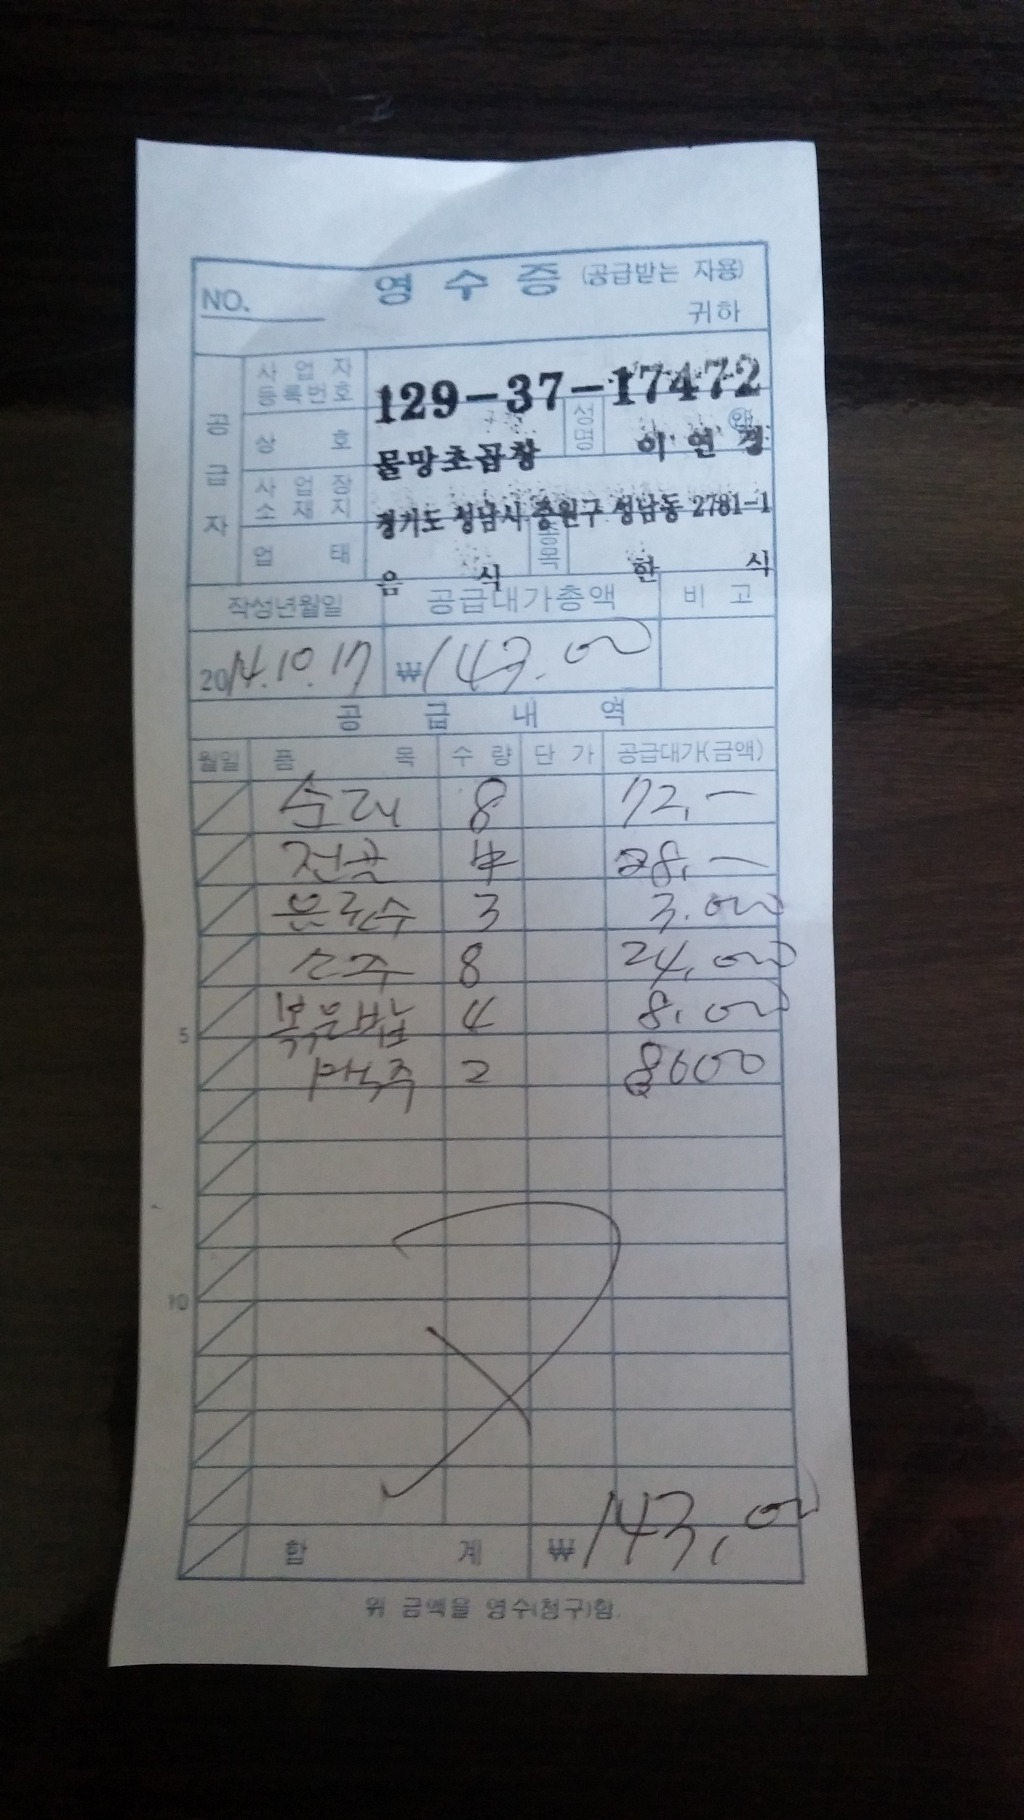 영 수 증 (공급받는 자용)
NO. 귀하
공급자
사업자등록번호 129-37-17472
상호 물망초곱창 성명 이연경 ㊞
사업장소재지 경기도 성남시 중원구 성남동 2781-1
업태 음식 종목 한식
작성년월일 공급대가총액 비고
2014.10.17 ₩143.000
공급내역
월일 품목 수량 단가 공급대가(금액)
순대 8 72,—
전골 4 28,—
음료수 3 3.000
소주 8 24,000
5 볶음밥 4 8,000
맥주 2 8000
10
합계 ₩143,000
위 금액을 영수(청구)함.